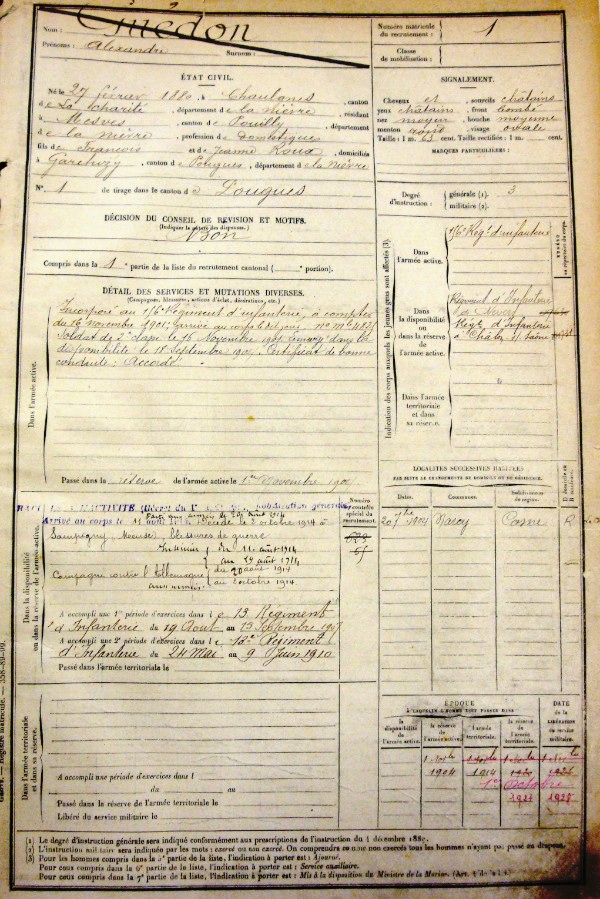 Nom : Guédon
Prénoms : Alexandre Surnom :
Numéro matricule du recrutement : 1
Classe de mobilisation :
ÉTAT CIVIL.
Né le 27 février 1880, à Chaulgnes, canton
de La Charité, département de la Nièvre, résidant
à Mesves, canton de Pouilly, département
de la Nièvre, profession de Domestique
fils de François et de Jeanne Roux, domiciliés
à Garchizy, canton de Pougues, département de la Nièvre
N° 1 de tirage dans le canton de Pougues
SIGNALEMENT.
Cheveux et sourcils châtains
yeux châtains, front bombé
nez moyen, bouche moyenne
menton rond, visage ovale
Taille : 1 m. 63 cent. Taille rectifiée : 1 m. cent.
MARQUES PARTICULIÈRES :
DÉCISION DU CONSEIL DE REVISION ET MOTIFS.
Bon
Compris dans la 1e partie de la liste du recrutement cantonal ( portion).
Degré d'instruction : générale (1). 3
militaire (2).
DÉTAIL DES SERVICES ET MUTATIONS DIVERSES.
(Campagnes, blessures, actions d'éclat, décorations, etc.)
Incorporé au Régiment d'infanterie, à compter
du 16 novembre 1901, arrivé au corps le dit jour, n° Mle
Soldat de 2e classe le 16 Novembre 1901. envoyé dans la
disponibilité le 18 Septembre Certificat de bonne
conduite : Accordé.
Dans l'armée active.
Passé dans la réserve de l'armée active le 1er Novembre
Indication des corps auxquels les jeunes gens sont affectés (3).
Dans l'armée active.
Régt d'infanterie
Dans la disponibilité ou dans la réserve de l'armée active.
Régiment d'Infanterie
de Nevers
Régt d'Infanterie
à Châlon s/ Saône
Dans l'armée territoriale et dans sa réserve.
NUMÉRO
au répertoire du corps.
mobilisation générale
Arrivé au corps le 11 août 1914 Décédé le 2 octobre 1914 à
Sampigny (Meuse) blessures de guerre
Intérieur du 11 août 1914
au
Campagne contre l'Allemagne du 20 août 1914
aux armées au 2 octobre 1914.
Numéro au contrôle spécial du recrutement.
Dans la disponibilité ou dans la réserve de l'armée active.
A accompli une 1re période d'exercices dans le 13 Régiment
d'Infanterie du 19 Août au Septembre 1907
A accompli une 2e période d'exercices dans le Régiment
d'Infanterie du 24 Mai au 9 Juin 1910
Passé dans l'armée territoriale le
LOCALITÉS SUCCESSIVES HABITÉES
PAR SUITE DE CHANGEMENTS DE DOMICILE OU DE RÉSIDENCE.
Dates. Communes. Subdivisions de région. D domicile ou R résidence.
1904 Narcy Cosne R
Dans l'armée territoriale et dans sa réserve.
A accompli une période d'exercices dans l
du au
Passé dans la réserve de l'armée territoriale le
Libéré du service militaire le
ÉPOQUE
À LAQUELLE L'HOMME DOIT PASSER DANS
la disponibilité de l'armée active. la réserve de l'armée active. l'armée territoriale. la réserve de l'armée territoriale.
DATE de la LIBÉRATION du service militaire.
1904 1914
1er Octobre
(1) Le degré d'instruction générale sera indiqué conformément aux prescriptions de l'instruction du 4 décembre 1889.
(2) L'instruction militaire sera indiquée par les mots : exercé ou non exercé. On comprendra comme non exercés tous les hommes n'ayant pas passé un drapeau.
(3) Pour les hommes compris dans la 5e partie de la liste, l'indication à porter est : Ajourné.
Pour ceux compris dans la 6e partie de la liste, l'indication à porter est : Service auxiliaire.
Pour ceux compris dans la 7e partie de la liste, l'indication à porter est : Mis à la disposition du Ministre de la Marine.